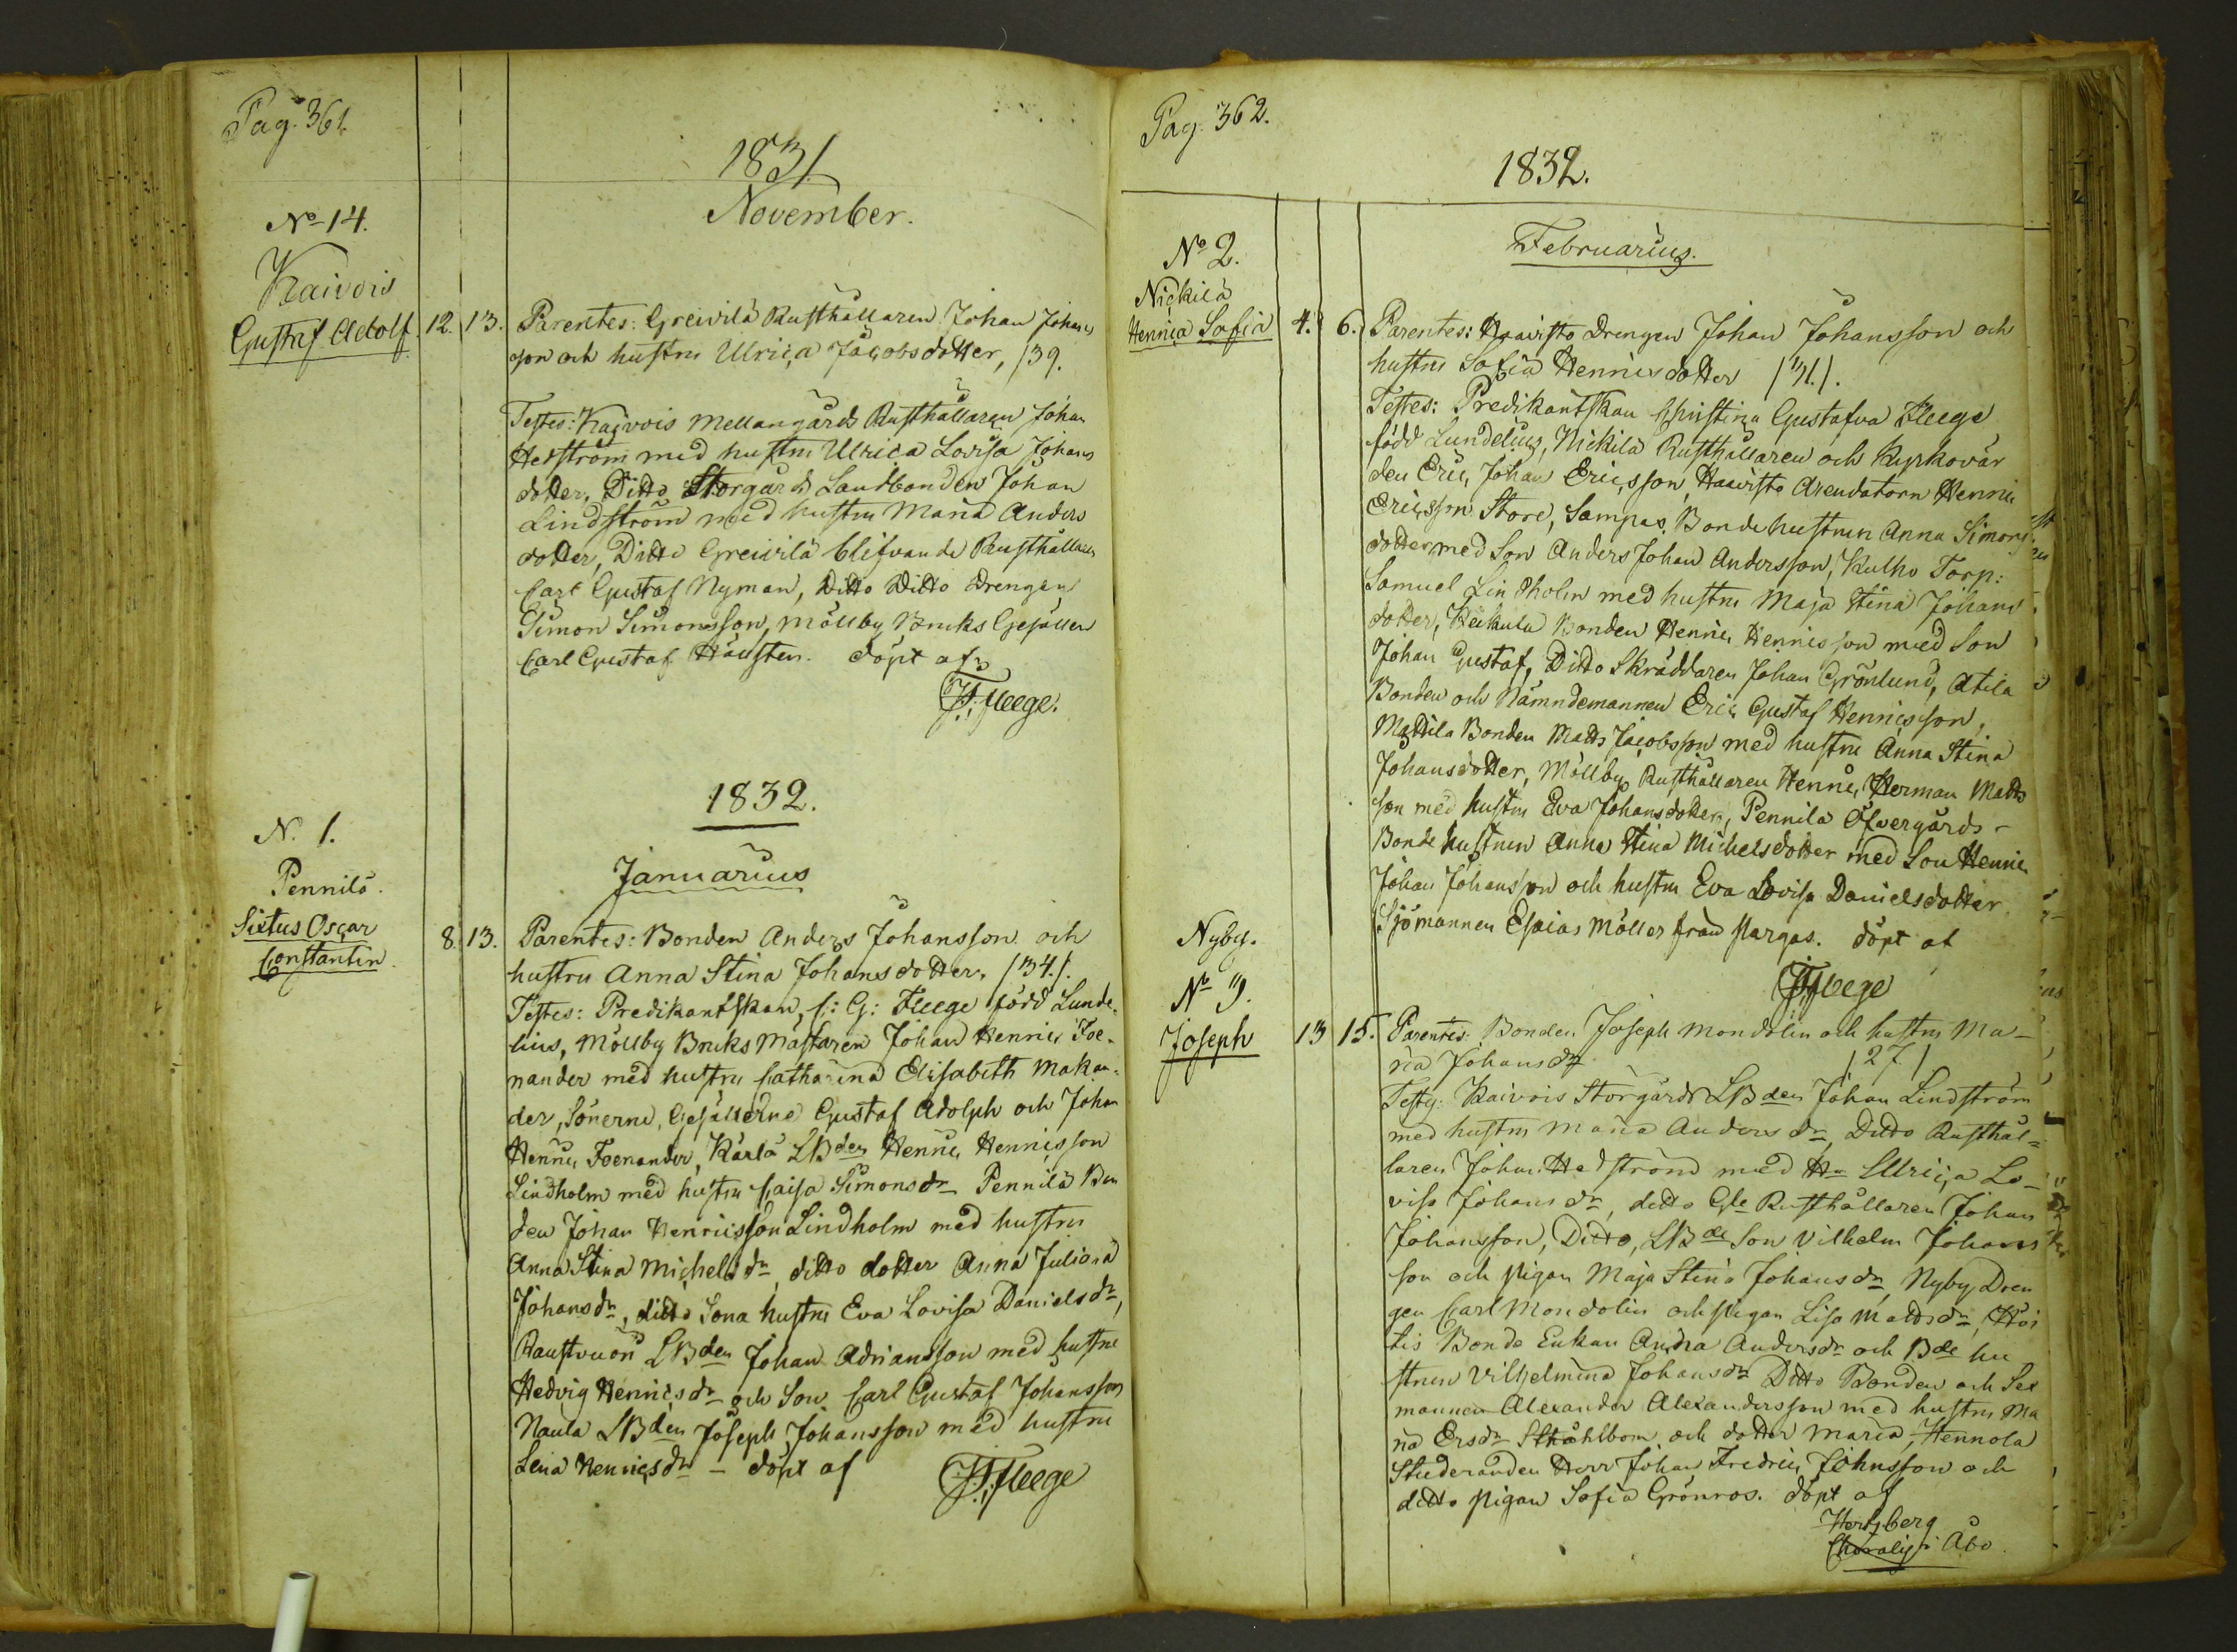 Pag. 361.
1831
November.
No 14.
Kaivois
Gustaf Adolf. 12. 13. Parentes: Greivilä Rusthållaren Johan Johans
son och hustru Ulrica Jacobsdotter, /39.
Testes: Kaivois Mellangårds Rusthållaren Johan
Hedström med hustru Ulrica Lovisa Johans
dotter, Ditto Storgårds Landbonden Johan
Lindström med hustru Maria Anders
dotter, Ditto Greivilä blifvande Rusthållaren
Carl Gustaf Nyman, Ditto Ditto Drengen
Simon Simonsson, Möllby Bruks Gesällen
Carl Gustaf Hausten. döpt af
Fleege.
1832.
Januarius
N. 1.
Pennilä.
Sixtus Oscar
Constantin. 8. 13. Parentes: Bonden Anders Johansson och
hustru Anna Stina Johansdotter. /34./.
Testes: Predikantskan, C: G: Fleege född Lunde-
lius, Möllby Bruks Mästaren Johan Henric Foe-
nander med hustru Catharina Elisabeth Makan-
der, Sönerne, Gesällerne Gustaf Adolph och Johan
Henric Foenander, Kärlä LBden Henric Henricsson
Lindholm med hustru Caisa Simonsdr Pennilä Bon
den Johan Henricsson Lindholm med hustru
Anna Stina Michelsdr, ditto dotter Anna Juliana
Johansdr, ditto Sona hustru Eva Lovisa Danielsdr,
Raustvuori LBden Johan Adriansson med hustru
Hedvig Henricsdr och Son Carl Gustaf Johansson
Naula LBden Joseph Johansson med hustru
Lena Henricsdr - döpt af Fleege
Pag. 362.
1832.
Februarius.
No 2.
Nickilä
Henrica Sofia 4. 6. Parentes: Haavisto Drengen Johan Johansson och
hustru Sofia Henricsdotter /31./.
Testes: Predikantskan Christina Gustafva Fleege
född Lundelius, Nickilä Rusthållaren och Kyrkovär
den Eric Johan Ericsson, Haavisto Arendatorn Henric
Ericsson Store, Sampas Bondehustrun Anna Simons
dotter med Son Anders Johan Andersson, Kulho Torp:
Samuel Lindholm med hustru Maja Stina Johans
dotter, Keikula Bonden Henric Henricsson med Son
Johan Gustaf, Ditto Skräddaren Johan Grönlund, Atila
Bonden och Nämndemannen Eric Gustaf Henricsson,
Mattila Bonden Matts Jacobsson med hustru Anna Stina
Johansdotter, Möllby Rusthållaren Henric Herman Matts
son med hustru Eva Johansdotter, Pennilä Öfvergårds-
Bonde hustrun Anna Stina Michelsdotter med Son Henric
Johan Johansson och hustru Eva Lovisa Danielsdotter
Sjömannen Esaias Möller från Pargas. döpt af
Fleege
Nyby.
No 3.
Joseph 13 15. Parentes: Bonden Joseph Mondolin och hustru Ma-
ria Johansdr /27/
Testes: Kaivois Storgårds LBden Johan Lindström
med hustru Maria Andersdr, Ditto Rusthål=
laren Johan Hedström med Hu Ulrica Lo-
visa Johansdr, ditto Gle Rusthållaren Johan
Johansson, Ditto, LBde Son Vilhelm Johans
son och Pigan Maja Stina Johansdr, Nyby Dren
gen Carl Mondolin och Pigan Lisa Mattsdr,
tis Bonde Enkan Andersdr och Bde hu
strun Vilhelmina Johansdr Ditto Bonden och Sex
mannen Alexander Alexandersson med hustru Ma
ria Ersdr Ståhlbom och dotter Maria, Hennola
Studeranden Herr Johan Fredric Johnsson och
ditto Pigan Sofia Grönroos. döpt af
Hertzberg
i Åbo.